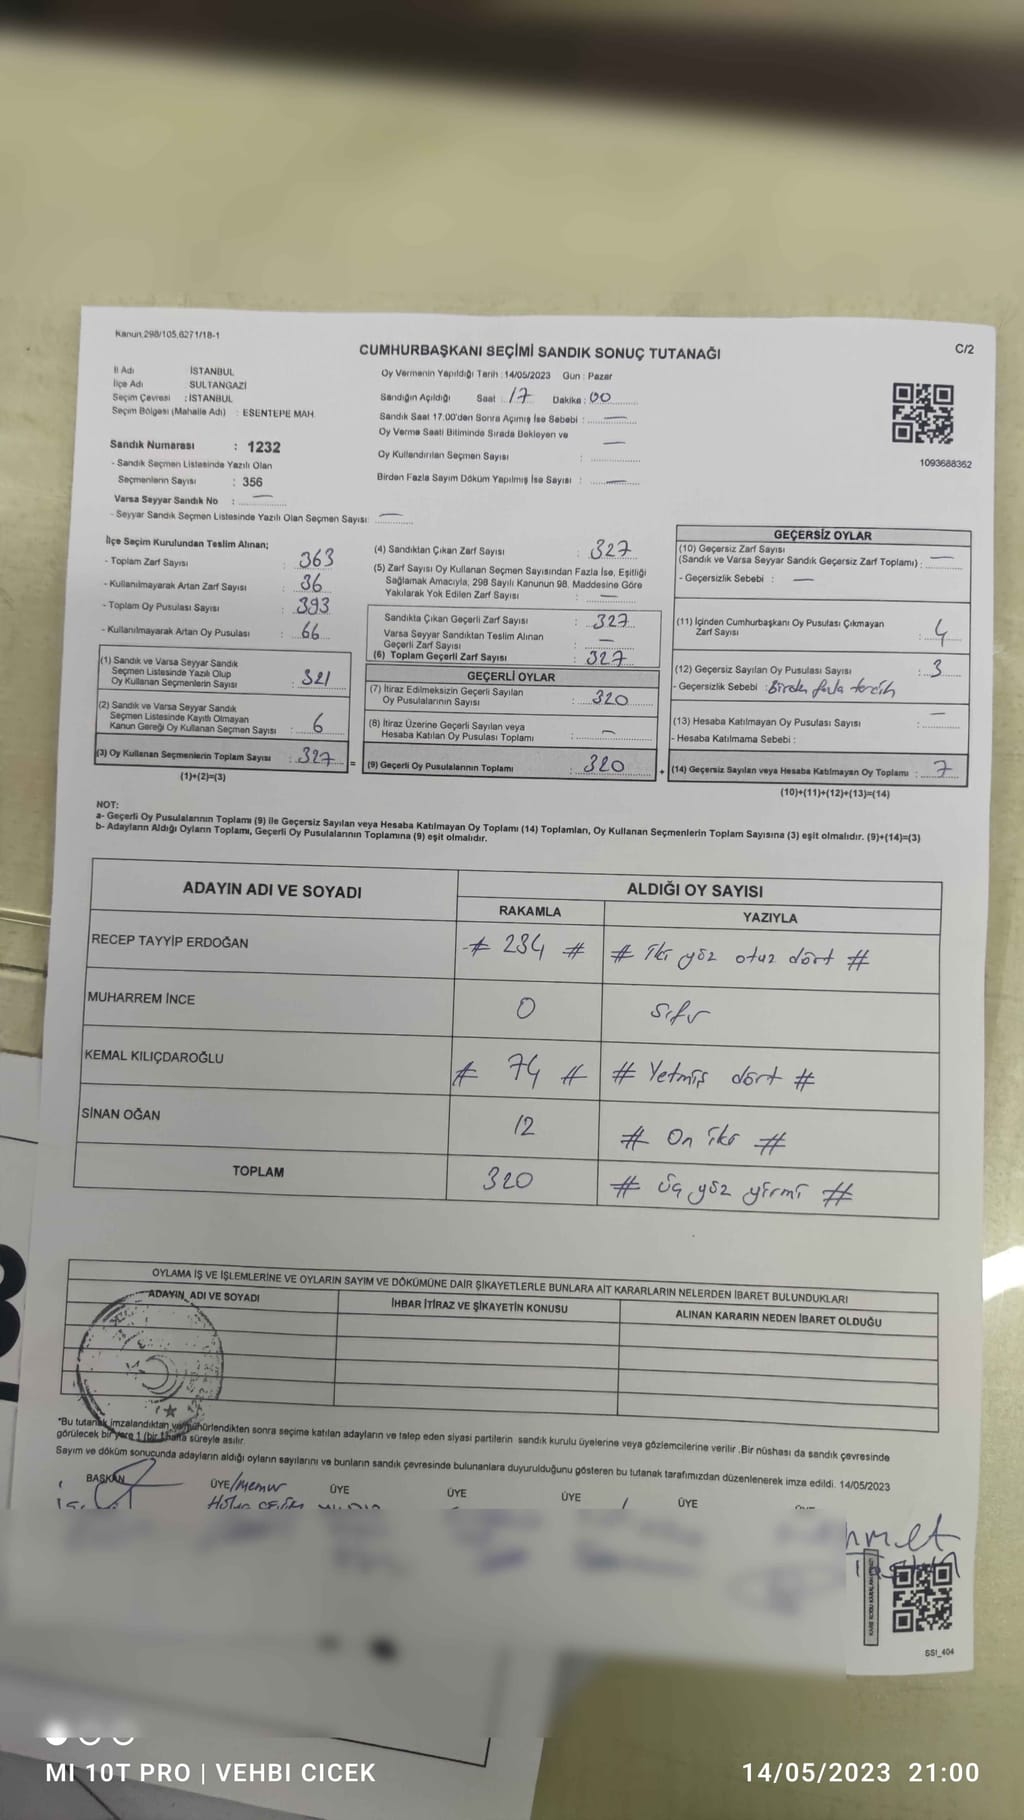 Kanun 298/105,6271/18-1
C/2
CUMHURBAŞKANI SEÇİMİ SANDIK SONUÇ TUTANAĞI
İl Adı : İSTANBUL
İlçe Adı SULTANGAZİ
Seçim Çevresi : İSTANBUL
Seçim Bölgesi (Mahalle Adı) : ESENTEPE MAH.
Sandık Numarası : 1232
- Sandık Seçmen Listesinde Yazılı Olan
Seçmenlerin Sayısı : 356
Varsa Seyyar Sandık No : —
- Seyyar Sandık Seçmen Listesinde Yazılı Olan Seçmen Sayısı: —
Oy Vermenin Yapıldığı Tarih : 14/05/2023 Gün : Pazar
Sandığın Açıldığı Saat : 17 Dakika : 00
Sandık Saat 17:00'den Sonra Açımış İse Sebebi : —
Oy Verme Saati Bitiminde Sırada Bekleyen ve —
Oy Kullandırılan Seçmen Sayısı :
Birden Fazla Sayım Döküm Yapılmış İse Sayısı : —
1093688362
İlçe Seçim Kurulundan Teslim Alınan;
- Toplam Zarf Sayısı : 363
- Kullanılmayarak Artan Zarf Sayısı : 36
- Toplam Oy Pusulası Sayısı : 393
- Kullanılmayarak Artan Oy Pusulası : 66
(1) Sandık ve Varsa Seyyar Sandık
Seçmen Listesinde Yazılı Olup
Oy Kullanan Seçmenlerin Sayısı : 321
(2) Sandık ve Varsa Seyyar Sandık
Seçmen Listesinde Kayıtlı Olmayan
Kanun Gereği Oy Kullanan Seçmen Sayısı : 6
(3) Oy Kullanan Seçmenlerin Toplam Sayısı : 327 =
(1)+(2)=(3)
(4) Sandıktan Çıkan Zarf Sayısı : 327
(5) Zarf Sayısı Oy Kullanan Seçmen Sayısından Fazla İse, Eşitliği
Sağlamak Amacıyla; 298 Sayılı Kanunun 98. Maddesine Göre
Yakılarak Yok Edilen Zarf Sayısı : —
Sandıkta Çıkan Geçerli Zarf Sayısı : 327
Varsa Seyyar Sandıktan Teslim Alınan
Geçerli Zarf Sayısı : —
(6) Toplam Geçerli Zarf Sayısı : 327
GEÇERLİ OYLAR
(7) İtiraz Edilmeksizin Geçerli Sayılan
Oy Pusulalarının Sayısı : 320
(8) İtiraz Üzerine Geçerli Sayılan veya
Hesaba Katılan Oy Pusulası Toplamı : —
(9) Geçerli Oy Pusulalarının Toplamı : 320 +
GEÇERSİZ OYLAR
(10) Geçersiz Zarf Sayısı
(Sandık ve Varsa Seyyar Sandık Geçersiz Zarf Toplamı) : —
- Geçersizlik Sebebi : —
(11) İçinden Cumhurbaşkanı Oy Pusulası Çıkmayan
Zarf Sayısı : 4
(12) Geçersiz Sayılan Oy Pusulası Sayısı : 3
- Geçersizlik Sebebi : Birden fazla tercih
(13) Hesaba Katılmayan Oy Pusulası Sayısı : —
- Hesaba Katılmama Sebebi :
(14) Geçersiz Sayılan veya Hesaba Katılmayan Oy Toplamı : 7
(10)+(11)+(12)+(13)=(14)
NOT:
a- Geçerli Oy Pusulalarının Toplamı (9) ile Geçersiz Sayılan veya Hesaba Katılmayan Oy Toplamı (14) Toplamları, Oy Kullanan Seçmenlerin Toplam Sayısına (3) eşit olmalıdır. (9)+(14)=(3)
b- Adayların Aldığı Oyların Toplamı, Geçerli Oy Pusulalarının Toplamına (9) eşit olmalıdır.
ADAYIN ADI VE SOYADI ALDIĞI OY SAYISI
RAKAMLA YAZIYLA
RECEP TAYYİP ERDOĞAN # 234 # # iki yöz otuz dört #
MUHARREM İNCE 0 sıfır
KEMAL KILIÇDAROĞLU # 74 # # Yetmiş dört #
SİNAN OĞAN 12 # On iki #
TOPLAM 320 # üç yöz yirmi #
OYLAMA İŞ VE İŞLEMLERİNE VE OYLARIN SAYIM VE DÖKÜMÜNE DAİR ŞİKAYETLERLE BUNLARA AİT KARARLARIN NELERDEN İBARET BULUNDUKLARI
ADAYIN ADI VE SOYADI İHBAR İTİRAZ VE ŞİKAYETİN KONUSU ALINAN KARARIN NEDEN İBARET OLDUĞU
*Bu tutanak imzalandıktan ve mühürlendikten sonra seçime katılan adayların ve talep eden siyasi partilerin sandık kurulu üyelerine veya gözlemcilerine verilir. Bir nüshası da sandık çevresinde
görülecek bir yere 1 (bir) hafta süreyle asılır.
Sayım ve döküm sonucunda adayların aldığı oyların sayılarını ve bunların sandık çevresinde bulunanlara duyurulduğunu gösteren bu tutanak tarafımızdan düzenlenerek imza edildi. 14/05/2023
BAŞKAN ÜYE/memur ÜYE ÜYE ÜYE ÜYE
SSI_404
MI 10T PRO | VEHBI CICEK
14/05/2023 21:00